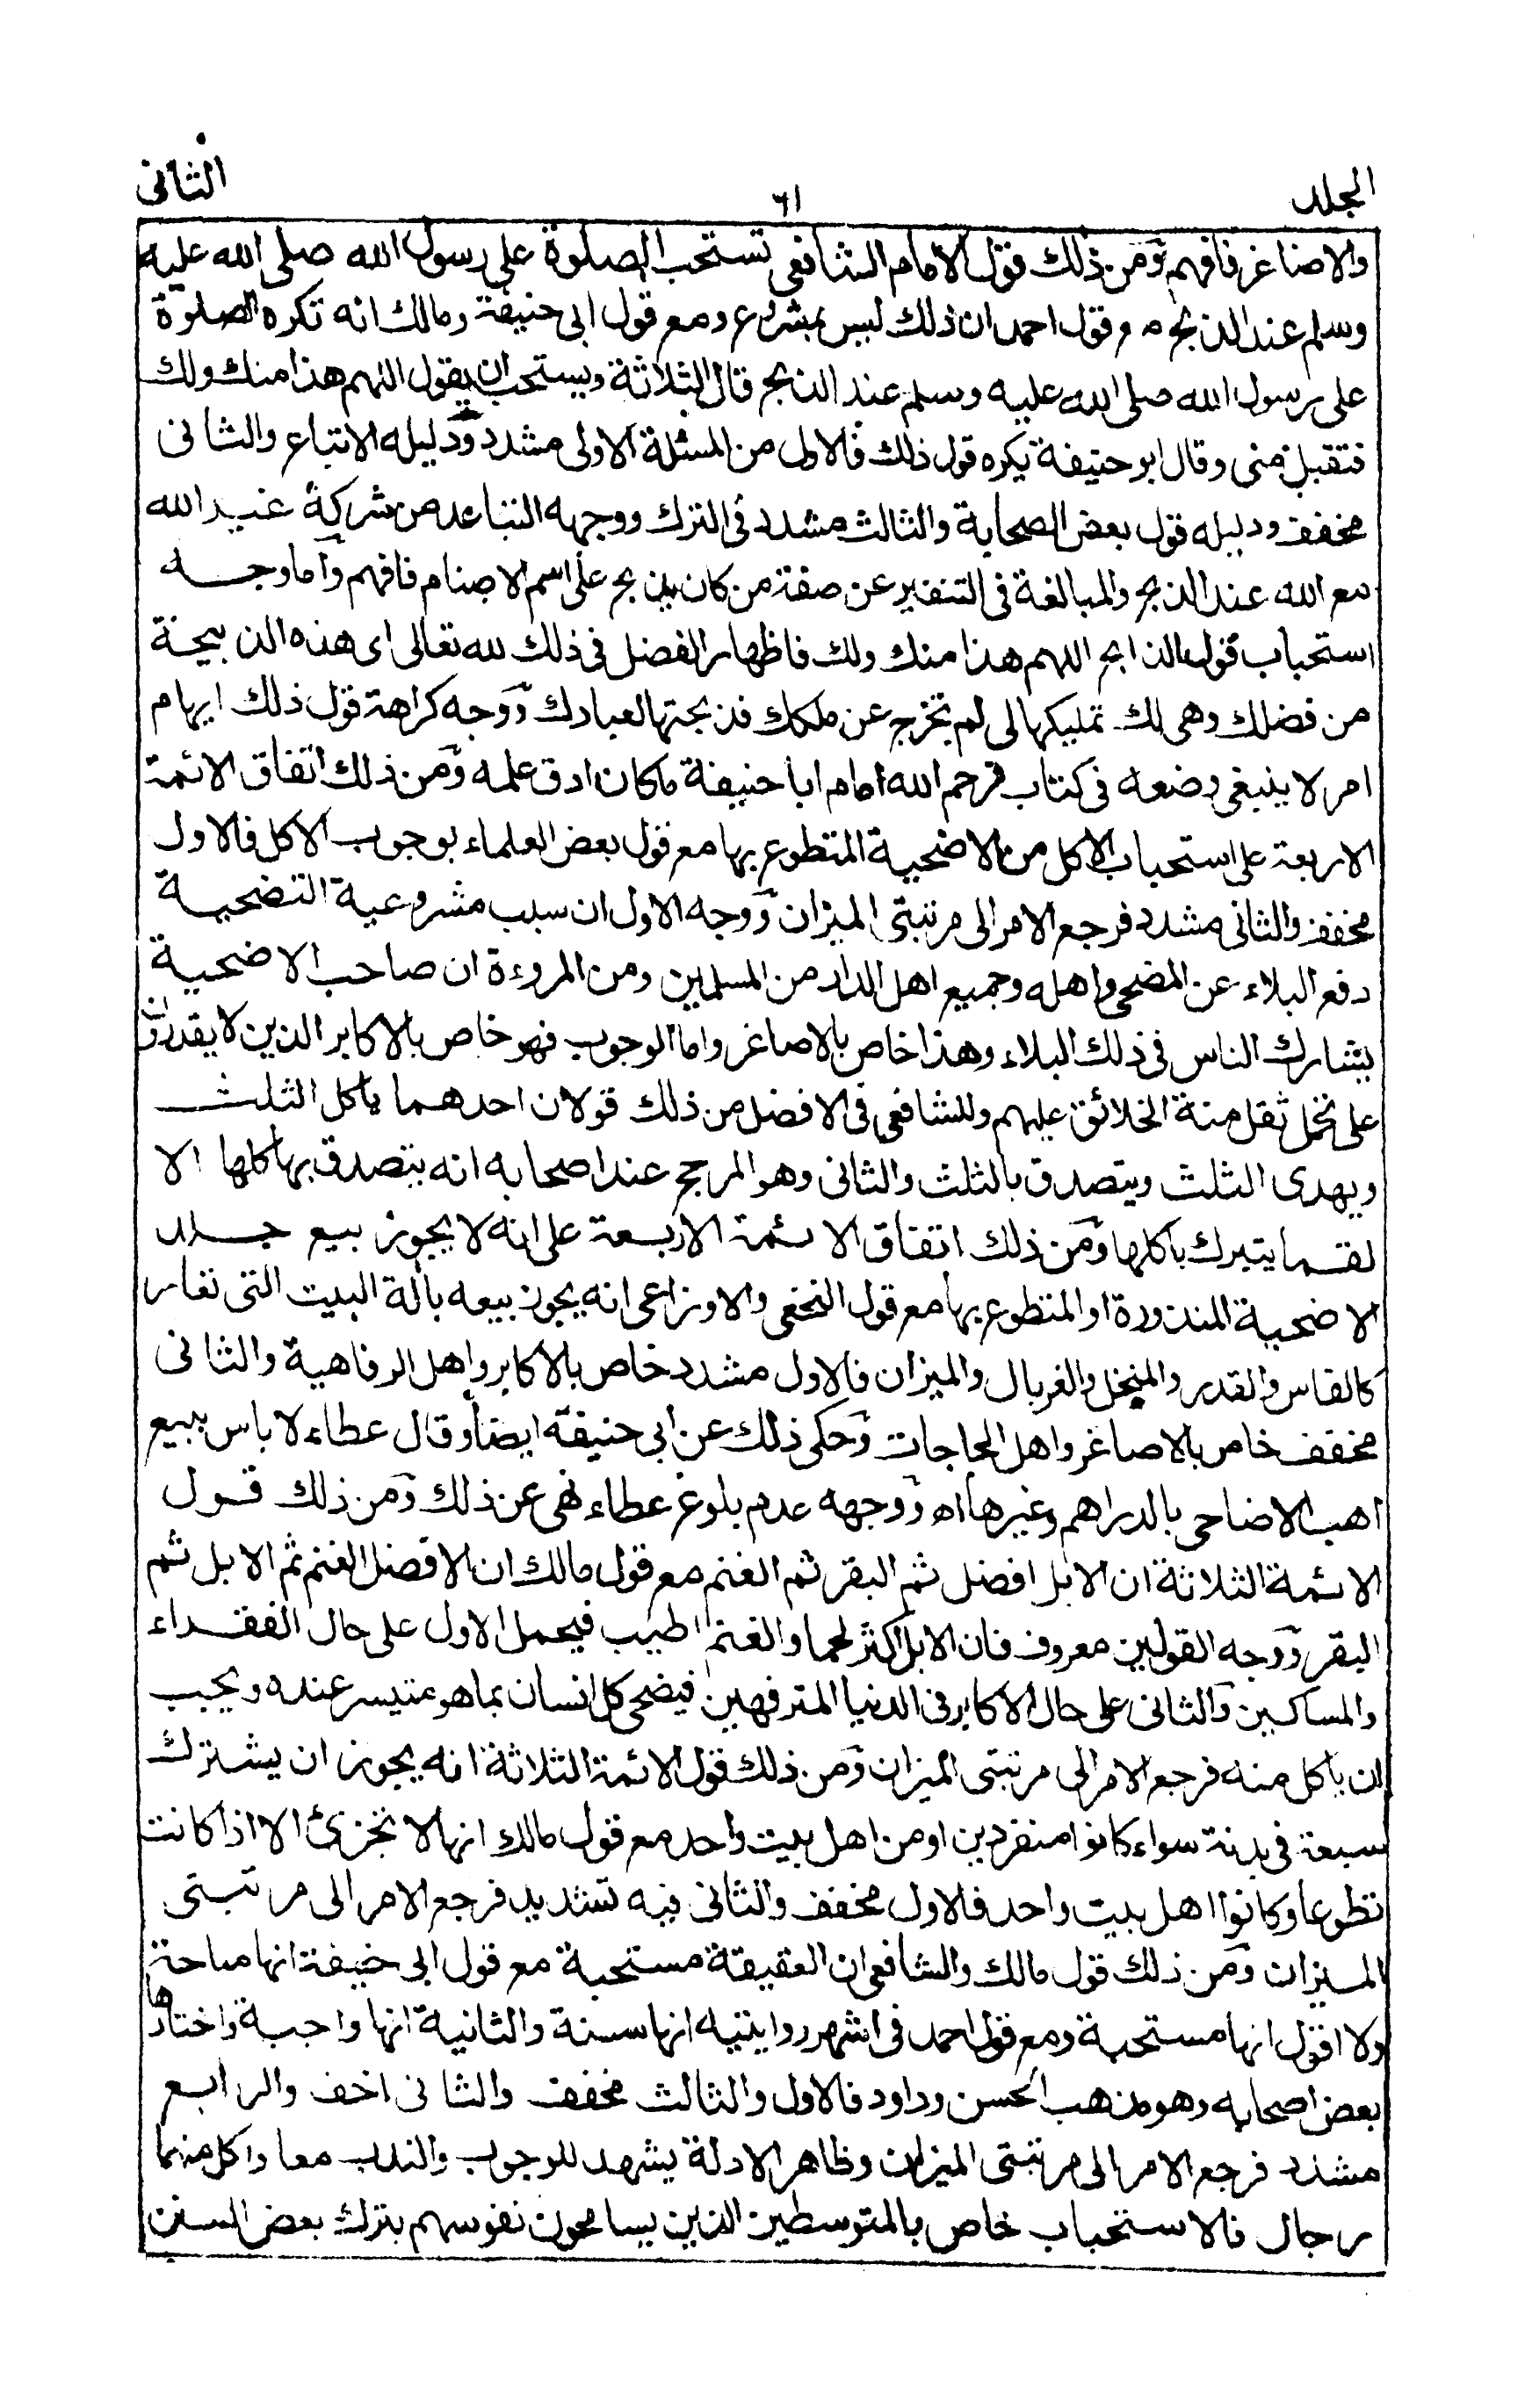 الجلد
٦١
الثانى
والاصاغر فافهم ومن ذلك قول الامام الشافعى تستحب الصلوة على رسول الله صلى الله عليه
وسلم عند الذبح وقول احمد ان ذلك ليس بمشروع ومع قول ابى حنيفة ومالك انه تكره الصلوة
على رسول الله صلى الله عليه وسلم عند الذبح قال الثلاثة ويستحب ان يقول اللهم هذا منك ولك
فتقبل منى وقال ابو حنيفة يكره قول ذلك فالاول من المسئلة الاولى مشدد ودليله الاتباع والثانى
مخفف ودليله قول بعض الصحابة والثالث مشدد فى الترك ووجهه التباعد من شركة غير الله
مع الله عند الذبح والمبالغة فى التنفير عن صفة من كان يذبح على اسم الاصنام فافهم واما وجه
استحباب قول الذابح اللهم هذا منك ولك فاظهار الفضل فى ذلك لله تعالى اى هذه الذبيحة
من فضلك وهى لك تمليكها لى لم تخرج عن ملكك فذبحتها لعبادك ووجه كراهة قول ذلك ايهام
امر لا ينبغى وضعه فى كتاب فرحم الله امام ابا حنيفة ما كان ادق علمه ومن ذلك اتفاق الائمة
الاربعة على استحباب الاكل من الاضحية المتطوع بها مع قول بعض العلماء بوجوب الاكل فالاول
مخفف والثانى مشدد فرجع الامر الى مرتبتى الميزان ووجه الاول ان سبب مشروعية التضحية
دفع البلاء عن المضحى واهله وجميع اهل الدار من المسلمين ومن المروءة ان صاحب الاضحية
يشارك الناس فى ذلك البلاء وهذا خاص بالاصاغر واما الوجوب فهو خاص بالاكابر الذين لا يقدرون
على تحمل ثقل منة الخلائق عليهم وللشافعى فى الافضل من ذلك قولان احدهما ياكل الثلث
ويهدى الثلث ويتصدق بالثلث والثانى وهو المرجح عند اصحابه انه يتصدق بها كلها الا
لقما يتبرك باكلها ومن ذلك اتفاق الائمة الاربعة على انه لا يجوز بيع جلد
الاضحية المنذورة او المتطوع بها مع قول النخعى والاوزاعى انه يجوز بيعه بآلة البيت التى تعار
كالفاس والقدر والمنخل والغربال والميزان فالاول مشدد خاص بالاكابر واهل الرفاهية والثانى
مخفف خاص بالاصاغر واهل الحاجات وحكى ذلك عن ابى حنيفة ايضا وقال عطاء لا باس ببيع
اهب الاضاحى بالدراهم وغيرها اه ووجهه عدم بلوغ عطاء نهى عن ذلك ومن ذلك قول
الائمة الثلاثة ان الابل افضل ثم البقر ثم الغنم مع قول مالك ان الافضل الغنم ثم الابل ثم
البقر ووجه القولين معروف فان الابل اكثر لحما والغنم اطيب فيحمل الاول على حال الفقراء
والمساكين والثانى على حال الاكابر فى الدنيا المترفهين فيضحى كل انسان بما هو متيسر عنده ويجب
ان ياكل منه فرجع الامر الى مرتبتى الميزان ومن ذلك قول الائمة الثلاثة انه يجوز ان يشترك
سبعة فى بدنة سواء كانوا منفردين او من اهل بيت واحد مع قول مالك انها لا تجزئ الا اذا كانت
تطوعا وكانوا اهل بيت واحد فالاول مخفف والثانى فيه تشديد فرجع الامر الى مرتبتى
الميزان ومن ذلك قول مالك والشافعى ان العقيقة مستحبة مع قول ابى حنيفة انها مباحة
ولا اقول انها مستحبة ومع قول احمد فى اشهر روايتيه انها سنة والثانية انها واجبة واختارها
بعض اصحابه وهو مذهب الحسن وداود فالاول والثالث مخفف والثانى اخف والرابع
مشدد فرجع الامر الى مرتبتى الميزان وظاهر الادلة يشهد للوجوب والندب معا ولكل منهما
رجال فالاستحباب خاص بالمتوسطين الذين يسامحون نفوسهم بترك بعض السنن